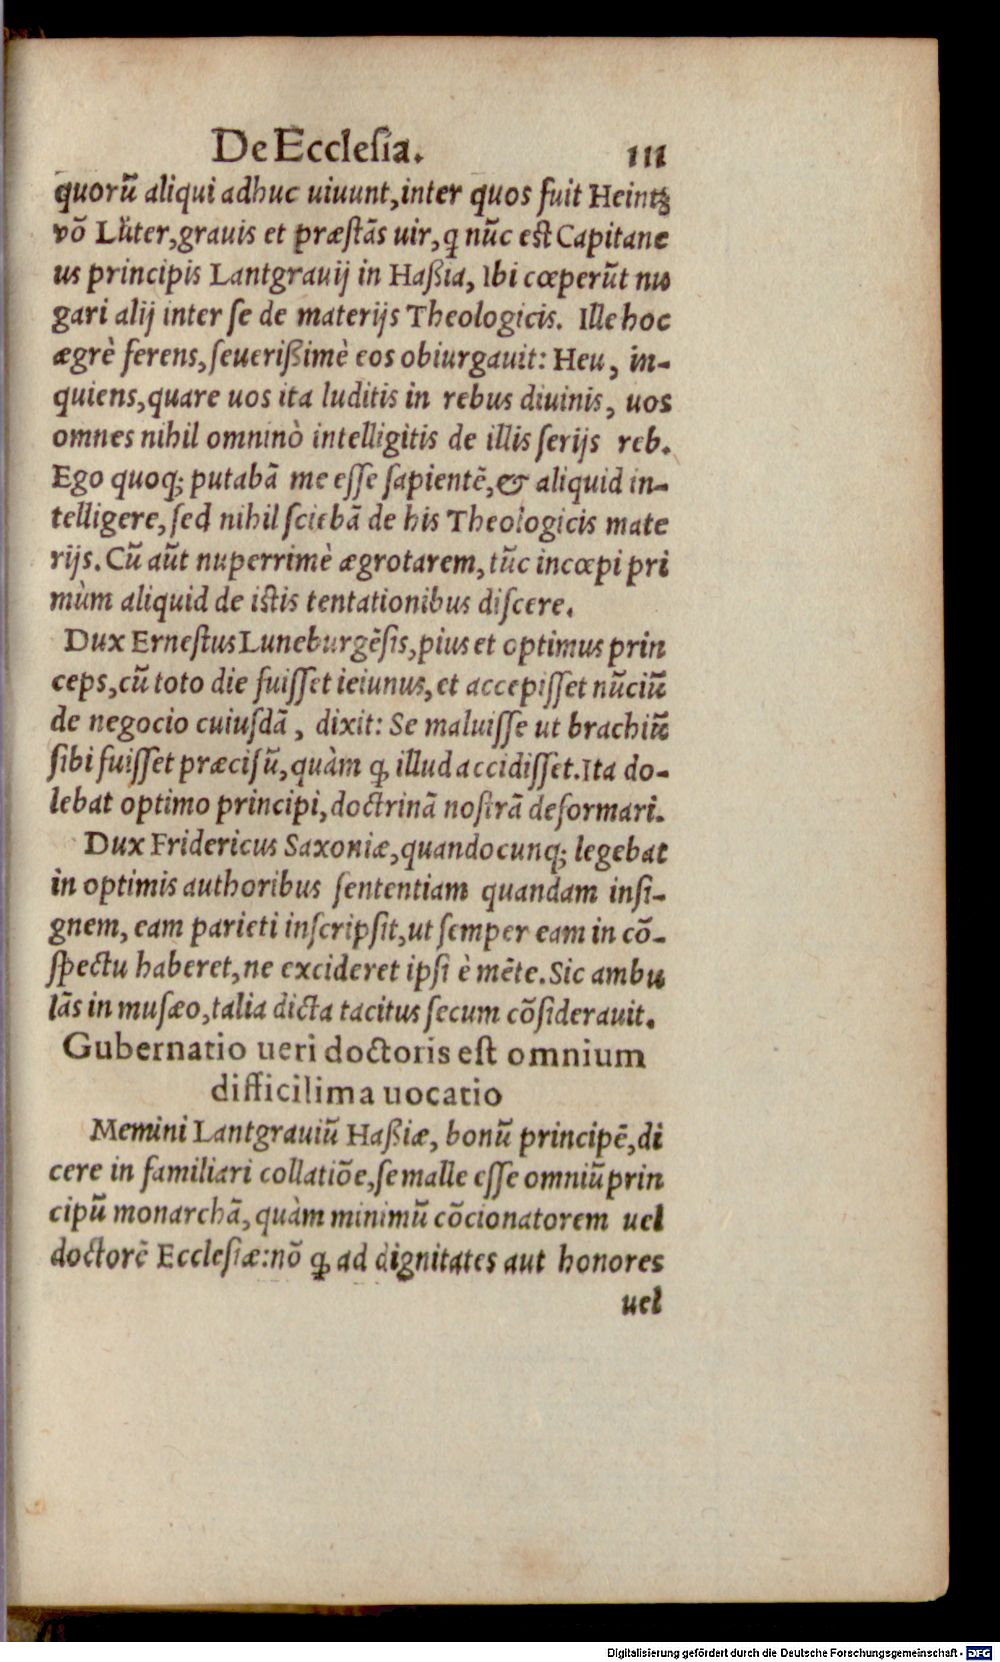 De Ecclesia. 111
quorū aliqui adhuc uiuunt, inter quos fuit Heintz
võ Lüter, grauis et præstãs uir, q nūc est Capitane
us principis Lantgrauij in Haßia, Ibi cœperūt nu
gari alij inter se de materijs Theologicis. Ille hoc
ægrè ferens, seuerißimè eos obiurgauit: Heu, in-
quiens, quare uos ita luditis in rebus diuinis, uos
omnes nihil omninò intelligitis de illis serijs reb.
Ego quoq; putabã me esse sapientẽ, & aliquid in-
telligere, sed nihil sciebã de his Theologicis mate
rijs. Cū aūt nuperrimè ægrotarem, tūc incœpi pri
mùm aliquid de istis tentationibus discere.
Dux Ernestus Luneburgẽsis, pius et optimus prin
ceps, cū toto die fuisset ieiunus, et accepisset nūciū
de negocio cuiusdã, dixit: Se maluisse ut brachiū
sibi fuisset præcisū, quàm ꝙ illud accidisset. Ita do-
lebat optimo principi, doctrinã nostrã deformari.
Dux Fridericus Saxoniæ, quandocunq; legebat
in optimis authoribus sententiam quandam insi-
gnem, eam parieti inscripsit, ut semper eam in cõ-
spectu haberet, ne excideret ipsi è mẽte. Sic ambu
lãs in musæo, talia dicta tacitus secum cõsiderauit.
Gubernatio ueri doctoris est omnium
difficilima uocatio
Memini Lantgrauiū Haßiæ, bonū principẽ, di
cere in familiari collatiõe, se malle esse omniū prin
cipū monarchã, quàm minimū cõcionatorem uel
doctorẽ Ecclesiæ: nõ ꝙ ad dignitates aut honores
uel
Digitalisierung gefördert durch die Deutsche Forschungsgemeinschaft - DFG